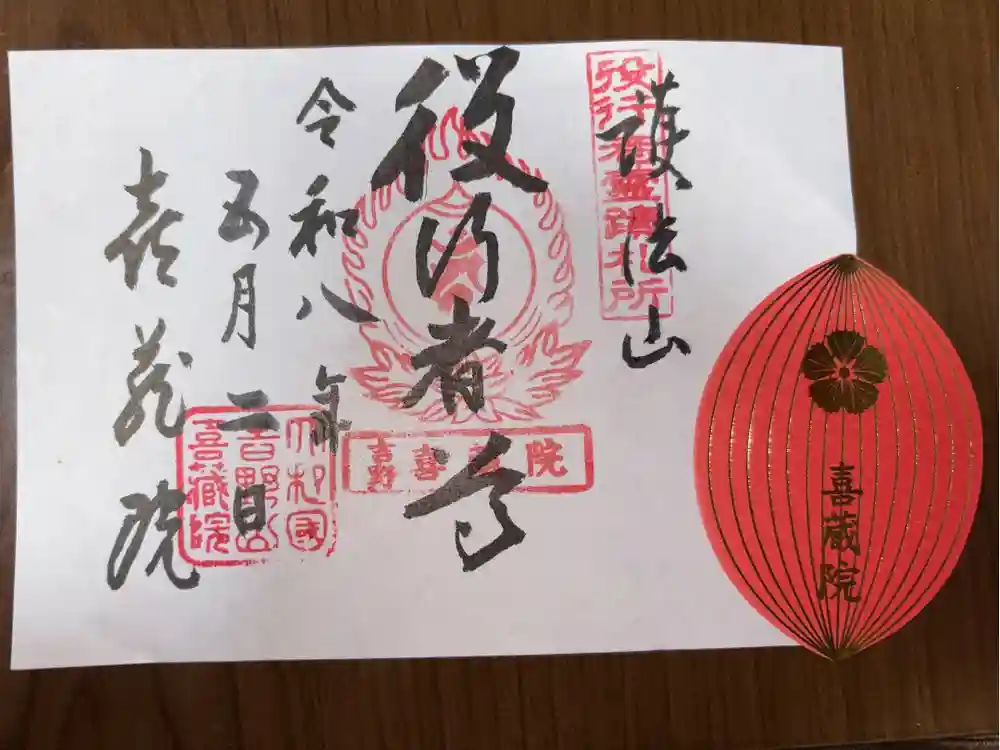 護法山
役行者尊
令和八年
五月二日
喜蔵院
役行者霊蹟札所
吉野 喜蔵院
大和國
吉野山
喜蔵院
喜蔵院